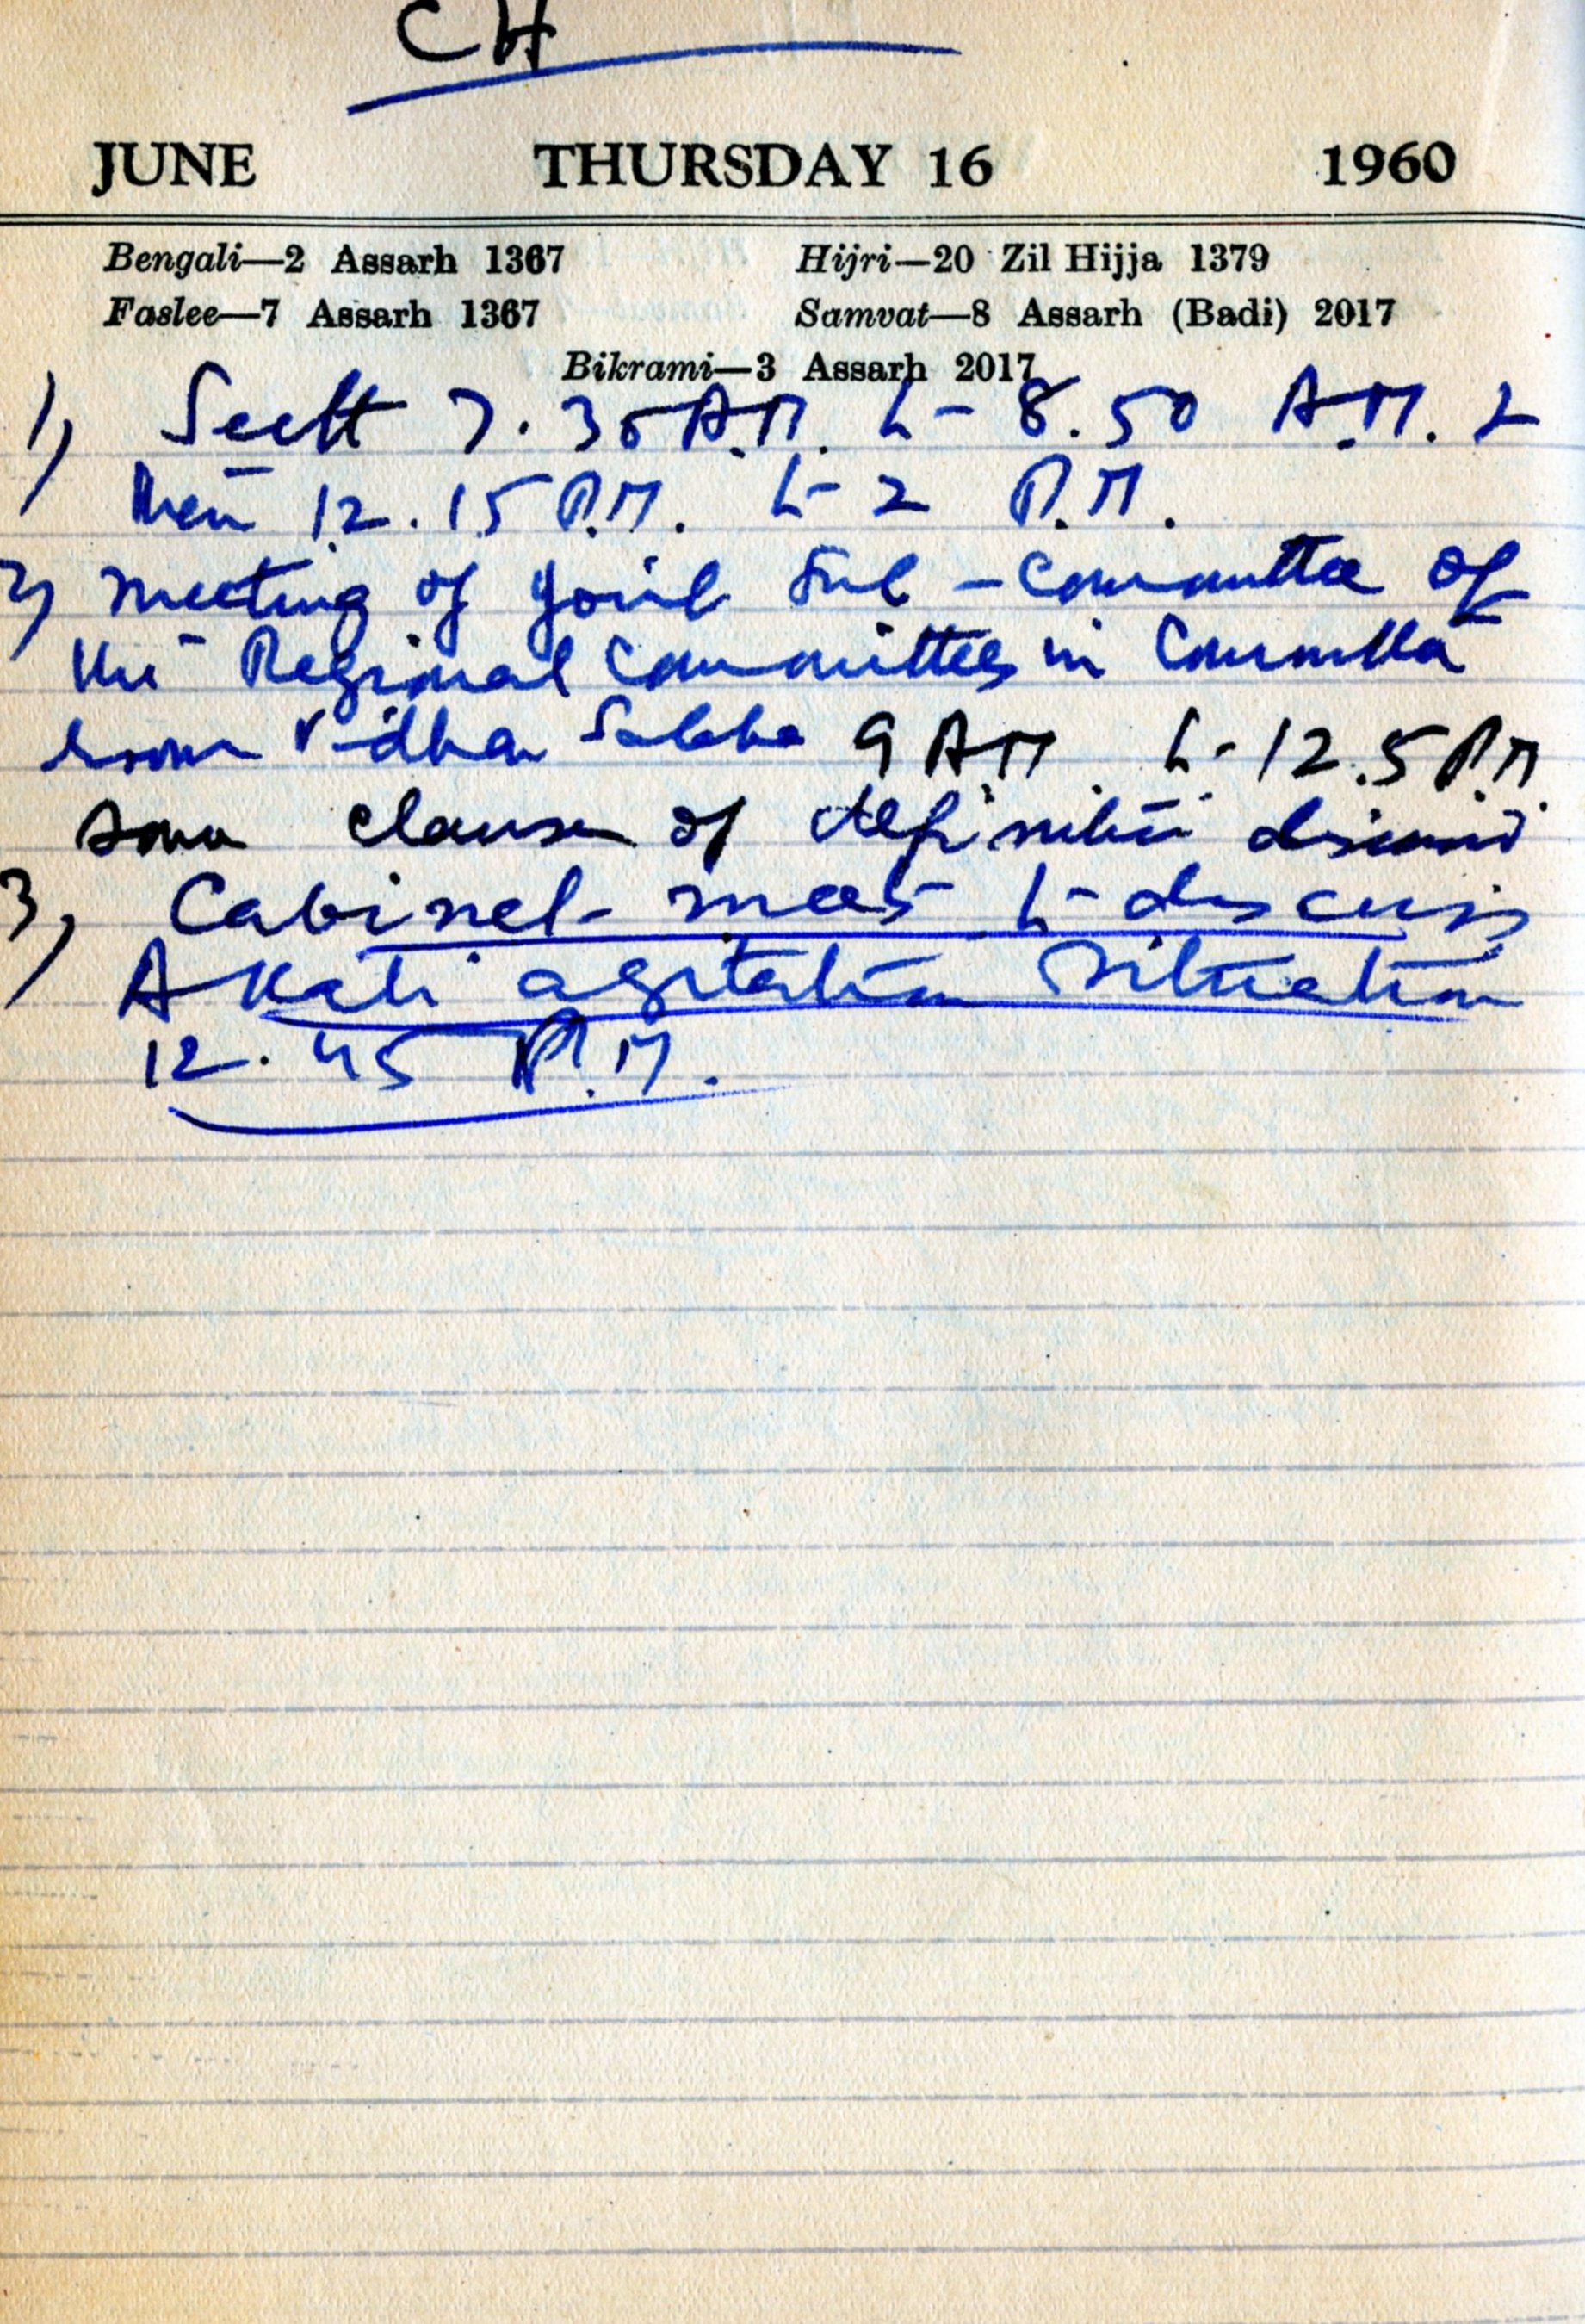 CH
JUNE THURSDAY 16 1960
Bengali—2 Assarh 1367 Hijri—20 Zil Hijja 1379
Faslee—7 Assarh 1367 Samvat—8 Assarh (Badi) 2017
Bikrami—3 Assarh 2017
1) Sectt 7.35 A.M. to 8.50 A.M. &
then 12.15 P.M. to 2 P.M.
2) meeting of joint Sub-Committee of
the Regional Committees in Committee
room Vidhan Sabha 9 AM to 12.5 P.M
some clauses of definition
3) Cabinet meets to discuss
Akali agitation situation
12.45 P.M.